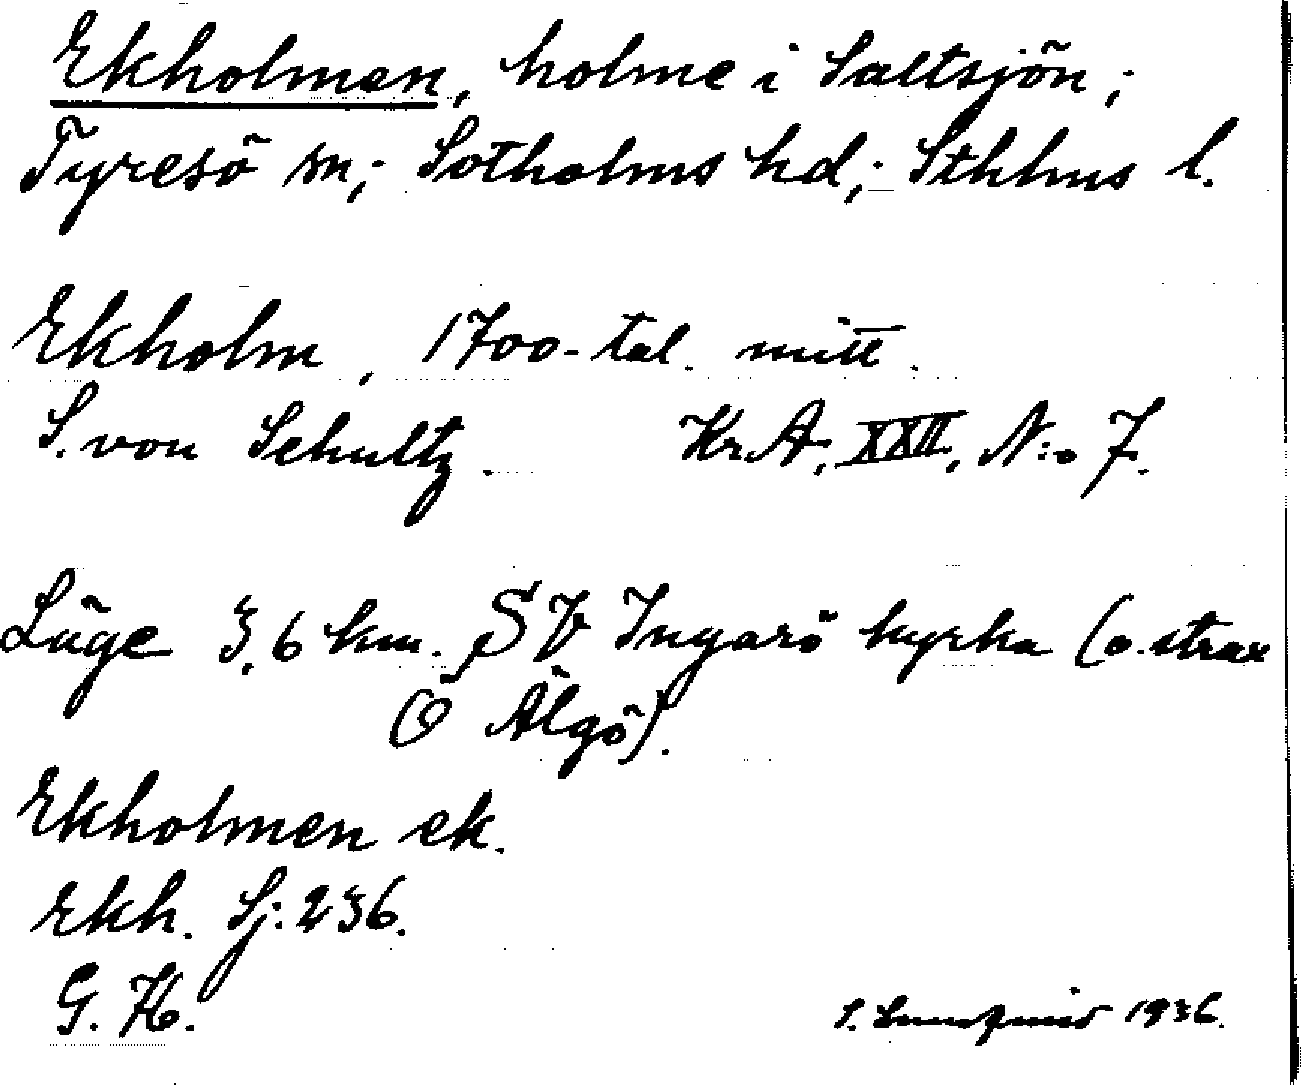 Ekholmen, holme i Saltsjön;
Tyresö sn; Sotholms hd; Sthlms l.
Ekholm, 1700-tal. mitt.
S. von Schultz. KrA, XXII, N:o 7.
Läge 3,6 km. SV Ingarö kyrka (o. strax
Ö Älgö).
Ekholmen ek.
Ekh. Sj: 236.
G. H.
S. Lundqvist 1936.